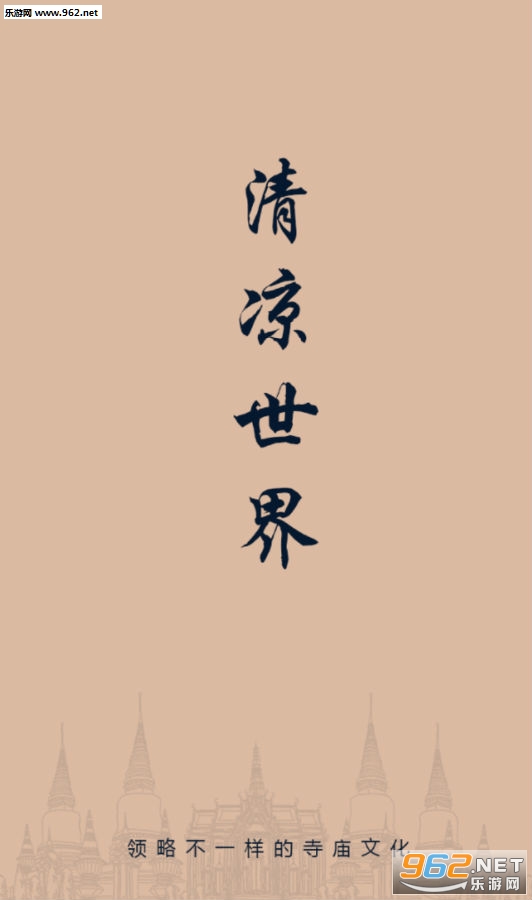 乐游网 www.962.net
清凉世界
领略不一样的寺庙文化
962.NET
乐游网